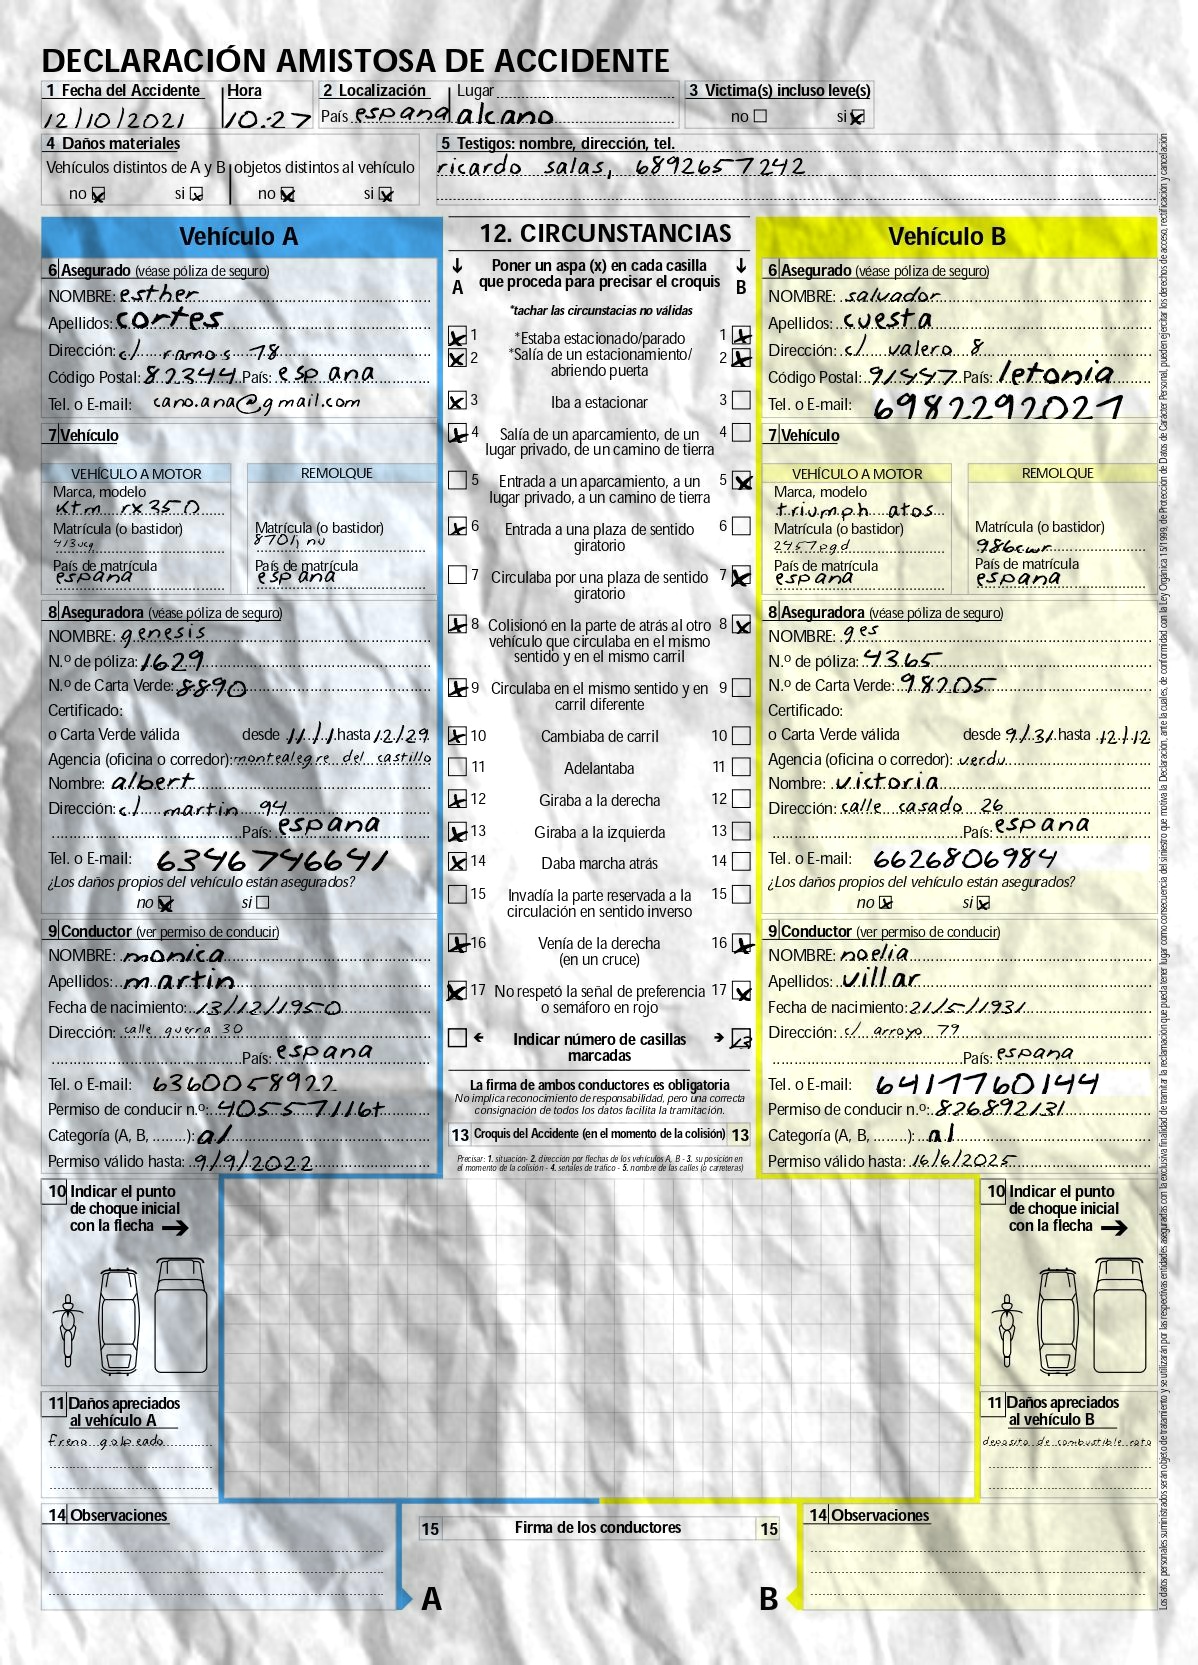 DECLARACIÓN AMISTOSA DE ACCIDENTE
1 Fecha del Accidente Hora 2 Localización Lugar 3 Victima(s) incluso leve(s)
12/10/2021 10:27 País espana alcano no si
4 Daños materiales
Vehículos distintos de A y B objetos distintos al vehículo
no si no si
5 Testigos: nombre, dirección, tel.
ricardo salas, 6892657242
Vehículo A
6 Asegurado (véase póliza de seguro)
NOMBRE: esther
Apellidos: cortes
Dirección: c/ ramos 78
Código Postal: 82344 País: espana
Tel. o E-mail: cano.ana@gmail.com
7 Vehículo
VEHÍCULO A MOTOR REMOLQUE
Marca, modelo
ktm rx350
Matrícula (o bastidor) Matrícula (o bastidor)
413ucg
País de matrícula País de matrícula
espana espana
8 Aseguradora (véase póliza de seguro)
NOMBRE: genesis
N.º de póliza: 1629
N.º de Carta Verde: 8890
Certificado:
o Carta Verde válida desde 11/1 hasta 12/29
Agencia (oficina o corredor): montealegre del castillo
Nombre: albert
Dirección: c/ martin 94
País: espana
Tel. o E-mail: 6346746641
¿Los daños propios del vehículo están asegurados?
no si
9 Conductor (ver permiso de conducir)
NOMBRE: monica
Apellidos: martin
Fecha de nacimiento: 13/12/1950
Dirección: calle guerra 30
País: espana
Tel. o E-mail: 6360058922
Permiso de conducir n.º: 40557116t
Categoría (A, B, ........): al
Permiso válido hasta: 9/9/2022
12. CIRCUNSTANCIAS
A Poner un aspa (x) en cada casilla B
que proceda para precisar el croquis
*tachar las circunstacias no válidas
1 *Estaba estacionado/parado 1
2 *Salía de un estacionamiento/ 2
abriendo puerta
3 Iba a estacionar 3
4 Salía de un aparcamiento, de un 4
lugar privado, de un camino de tierra
5 Entrada a un aparcamiento, a un 5
lugar privado, a un camino de tierra
6 Entrada a una plaza de sentido 6
giratorio
7 Circulaba por una plaza de sentido 7
giratorio
8 Colisionó en la parte de atrás al otro 8
vehículo que circulaba en el mismo
sentido y en el mismo carril
9 Circulaba en el mismo sentido y en 9
carril diferente
10 Cambiaba de carril 10
11 Adelantaba 11
12 Giraba a la derecha 12
13 Giraba a la izquierda 13
14 Daba marcha atrás 14
15 Invadía la parte reservada a la 15
circulación en sentido inverso
16 Venía de la derecha 16
(en un cruce)
17 No respetó la señal de preferencia 17
o semáforo en rojo
Indicar número de casillas 13
marcadas
La firma de ambos conductores es obligatoria
No implica reconocimiento de responsabilidad, pero una correcta
consignación de todos los datos facilita la tramitación.
13 Croquis del Accidente (en el momento de la colisión) 13
Precisar: 1. situación- 2. dirección por flechas de los vehículos A, B - 3. su posición en
el momento de la colisión - 4. señales de tráfico - 5. nombre de las calles (o carreteras)
Vehículo B
6 Asegurado (véase póliza de seguro)
NOMBRE: salvador
Apellidos: cuesta
Dirección: c/ valero 8
Código Postal: País: letonia
Tel. o E-mail: 6982292021
7 Vehículo
VEHÍCULO A MOTOR REMOLQUE
Marca, modelo
triumph atos
Matrícula (o bastidor) Matrícula (o bastidor)
2457pgd 986cwr
País de matrícula País de matrícula
espana espana
8 Aseguradora (véase póliza de seguro)
NOMBRE: ges
N.º de póliza: 4365
N.º de Carta Verde: 98205
Certificado:
o Carta Verde válida desde 9/31 hasta 12/12
Agencia (oficina o corredor): verdu
Nombre: victoria
Dirección: calle casado 26
País: espana
Tel. o E-mail: 6626806984
¿Los daños propios del vehículo están asegurados?
no si
9 Conductor (ver permiso de conducir)
NOMBRE: noelia
Apellidos: villar
Fecha de nacimiento: 21/5/1931
Dirección: c/ arroyo 79
País: espana
Tel. o E-mail: 6417760144
Permiso de conducir n.º: 82689213l
Categoría (A, B, ........): al
Permiso válido hasta: 16/6/2025
10 Indicar el punto
de choque inicial
con la flecha
11 Daños apreciados
al vehículo A
freno golpeado
10 Indicar el punto
de choque inicial
con la flecha
11 Daños apreciados
al vehículo B
deposito de combustible roto
14 Observaciones
15 Firma de los conductores 15
A B
14 Observaciones
Los datos personales suministrados serán objeto de tratamiento y se utilizarán por las respectivas entidades aseguradas con la exclusiva finalidad de tramitar la reclamación que pueda tener lugar como consecuencia del siniestro que motiva la Declaración, ante la cuales, de conformidad con la Ley Orgánica 15/1999, de Protección de Datos de Carácter Personal, pueden ejercitar los derechos de acceso, rectificación y cancelación